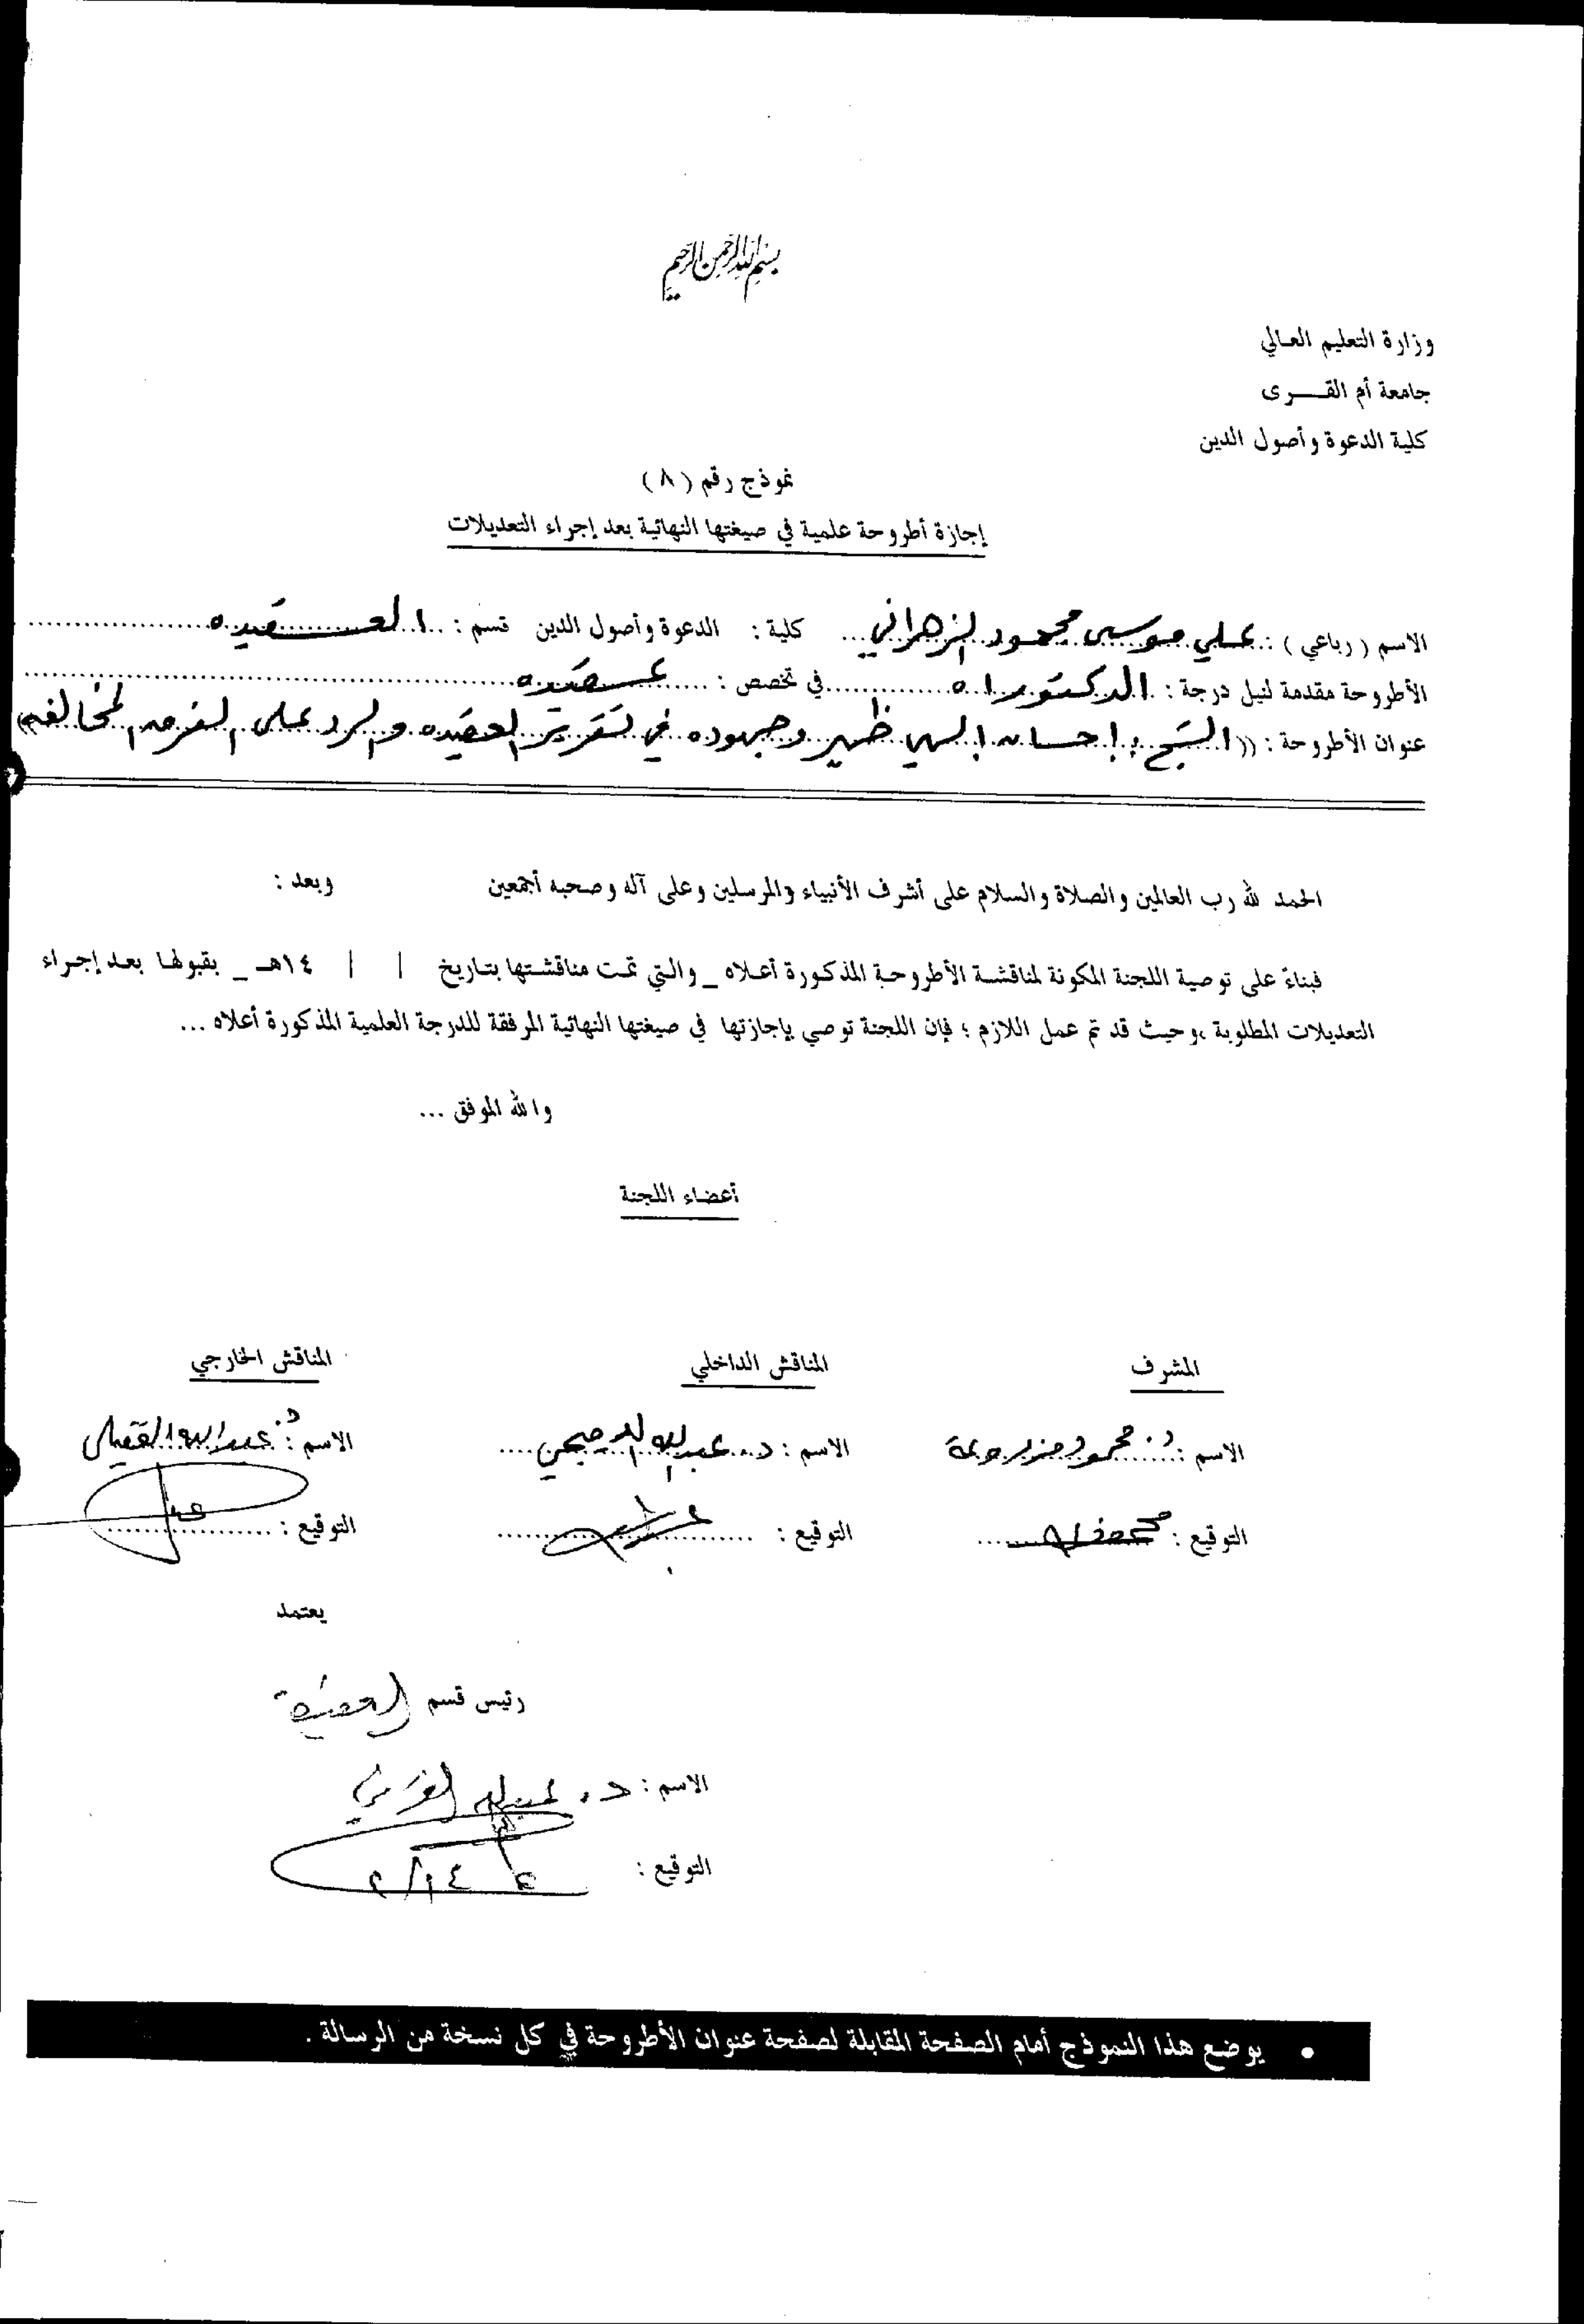 بسم الله الرحمن الرحيم
وزارة التعليم العالي
جامعة أم القــــرى
كلية الدعوة وأصول الدين
نموذج رقم ( ٨ )
إجازة أطروحة علمية في صيغتها النهائية بعد إجراء التعديلات
الاسم ( رباعي ) : علي موسى محمود الزهراني كلية : الدعوة وأصول الدين قسم : العقيده
الأطروحة مقدمة لنيل درجة : الدكتوراه في تخصص : عقيده
عنوان الأطروحة : (( الشيخ إحسان إلهي ظهير وجهوده في تقرير العقيده والرد على الفرق المخالفه
الحمد لله رب العالمين والصلاة والسلام على أشرف الأنبياء والمرسلين وعلى آله وصحبه أجمعين وبعد :
فبناءً على توصية اللجنة المكونة لمناقشة الأطروحة المذكورة أعلاه _ والتي تمت مناقشتها بتاريخ / / ١٤هـ _ بقبولها بعد إجراء
التعديلات المطلوبة ،وحيث قد تم عمل اللازم ؛ فإن اللجنة توصي بإجازتها في صيغتها النهائية المرفقة للدرجة العلمية المذكورة أعلاه ...
والله الموفق ...
أعضاء اللجنة
المشرف المناقش الداخلي المناقش الخارجي
الاسم : د. محمود مزروعة الاسم : د. عبدالله الدميجي الاسم : د. عبدالله القفيلي
التوقيع : التوقيع : التوقيع :
يعتمد
رئيس قسم العقيدة
الاسم : د. عبدالله القرني
التوقيع :
• يوضع هذا النموذج أمام الصفحة المقابلة لصفحة عنوان الأطروحة في كل نسخة من الرسالة .